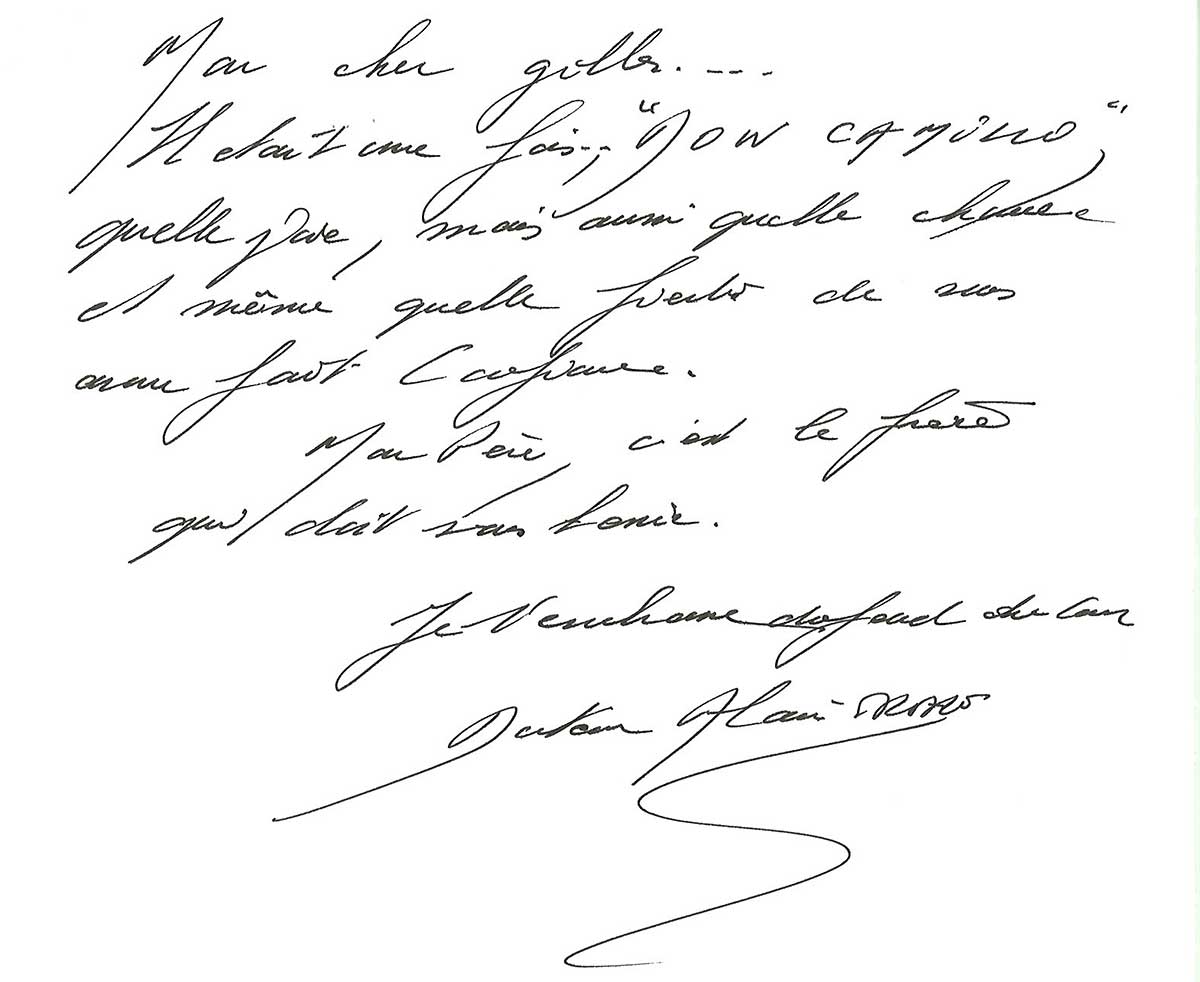 Mon cher Gilles....
Il était une fois.., "DON CAMILLO",
quelle joie, mais aussi quelle chance
et même quelle fierté de vous
avoir fait Confiance.
Mon Père, c'est le frère
qui doit vous tenir.
Je t'embrasse du fond du cœur
Docteur Alain